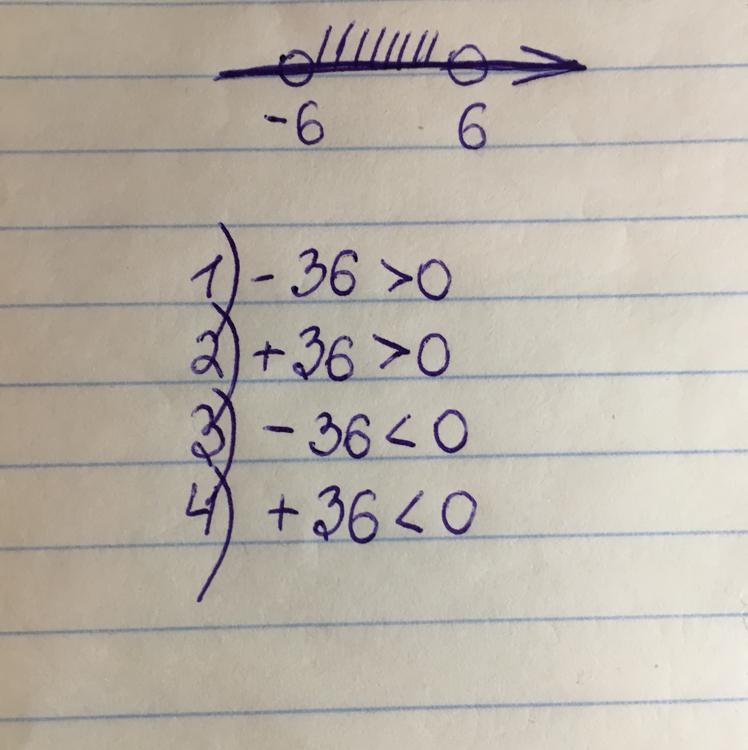 -6 6
1) - 36 >0
2) + 36 >0
3) - 36 < 0
4) + 36 < 0